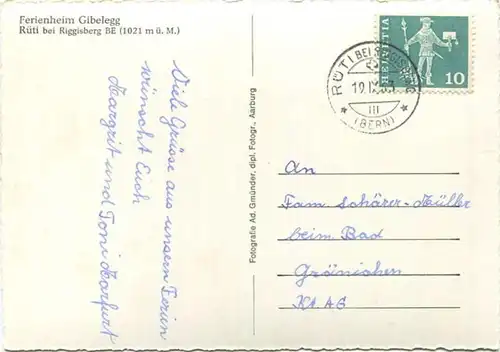 Ferienheim Gibelegg
Rüti bei Riggisberg BE (1021 m ü. M.)
Viele Grüsse aus unsern Ferien
wünscht Euch
Margrit und Toni Marfurt
Fotografie Ad. Gmünder, dipl. Fotogr., Aarburg
HELVETIA
10
RÜTI BEI RIGGISBERG
III
(BERN)
An
Fam Schärer-Müller
beim Bad
Gränichen
Kt. AG